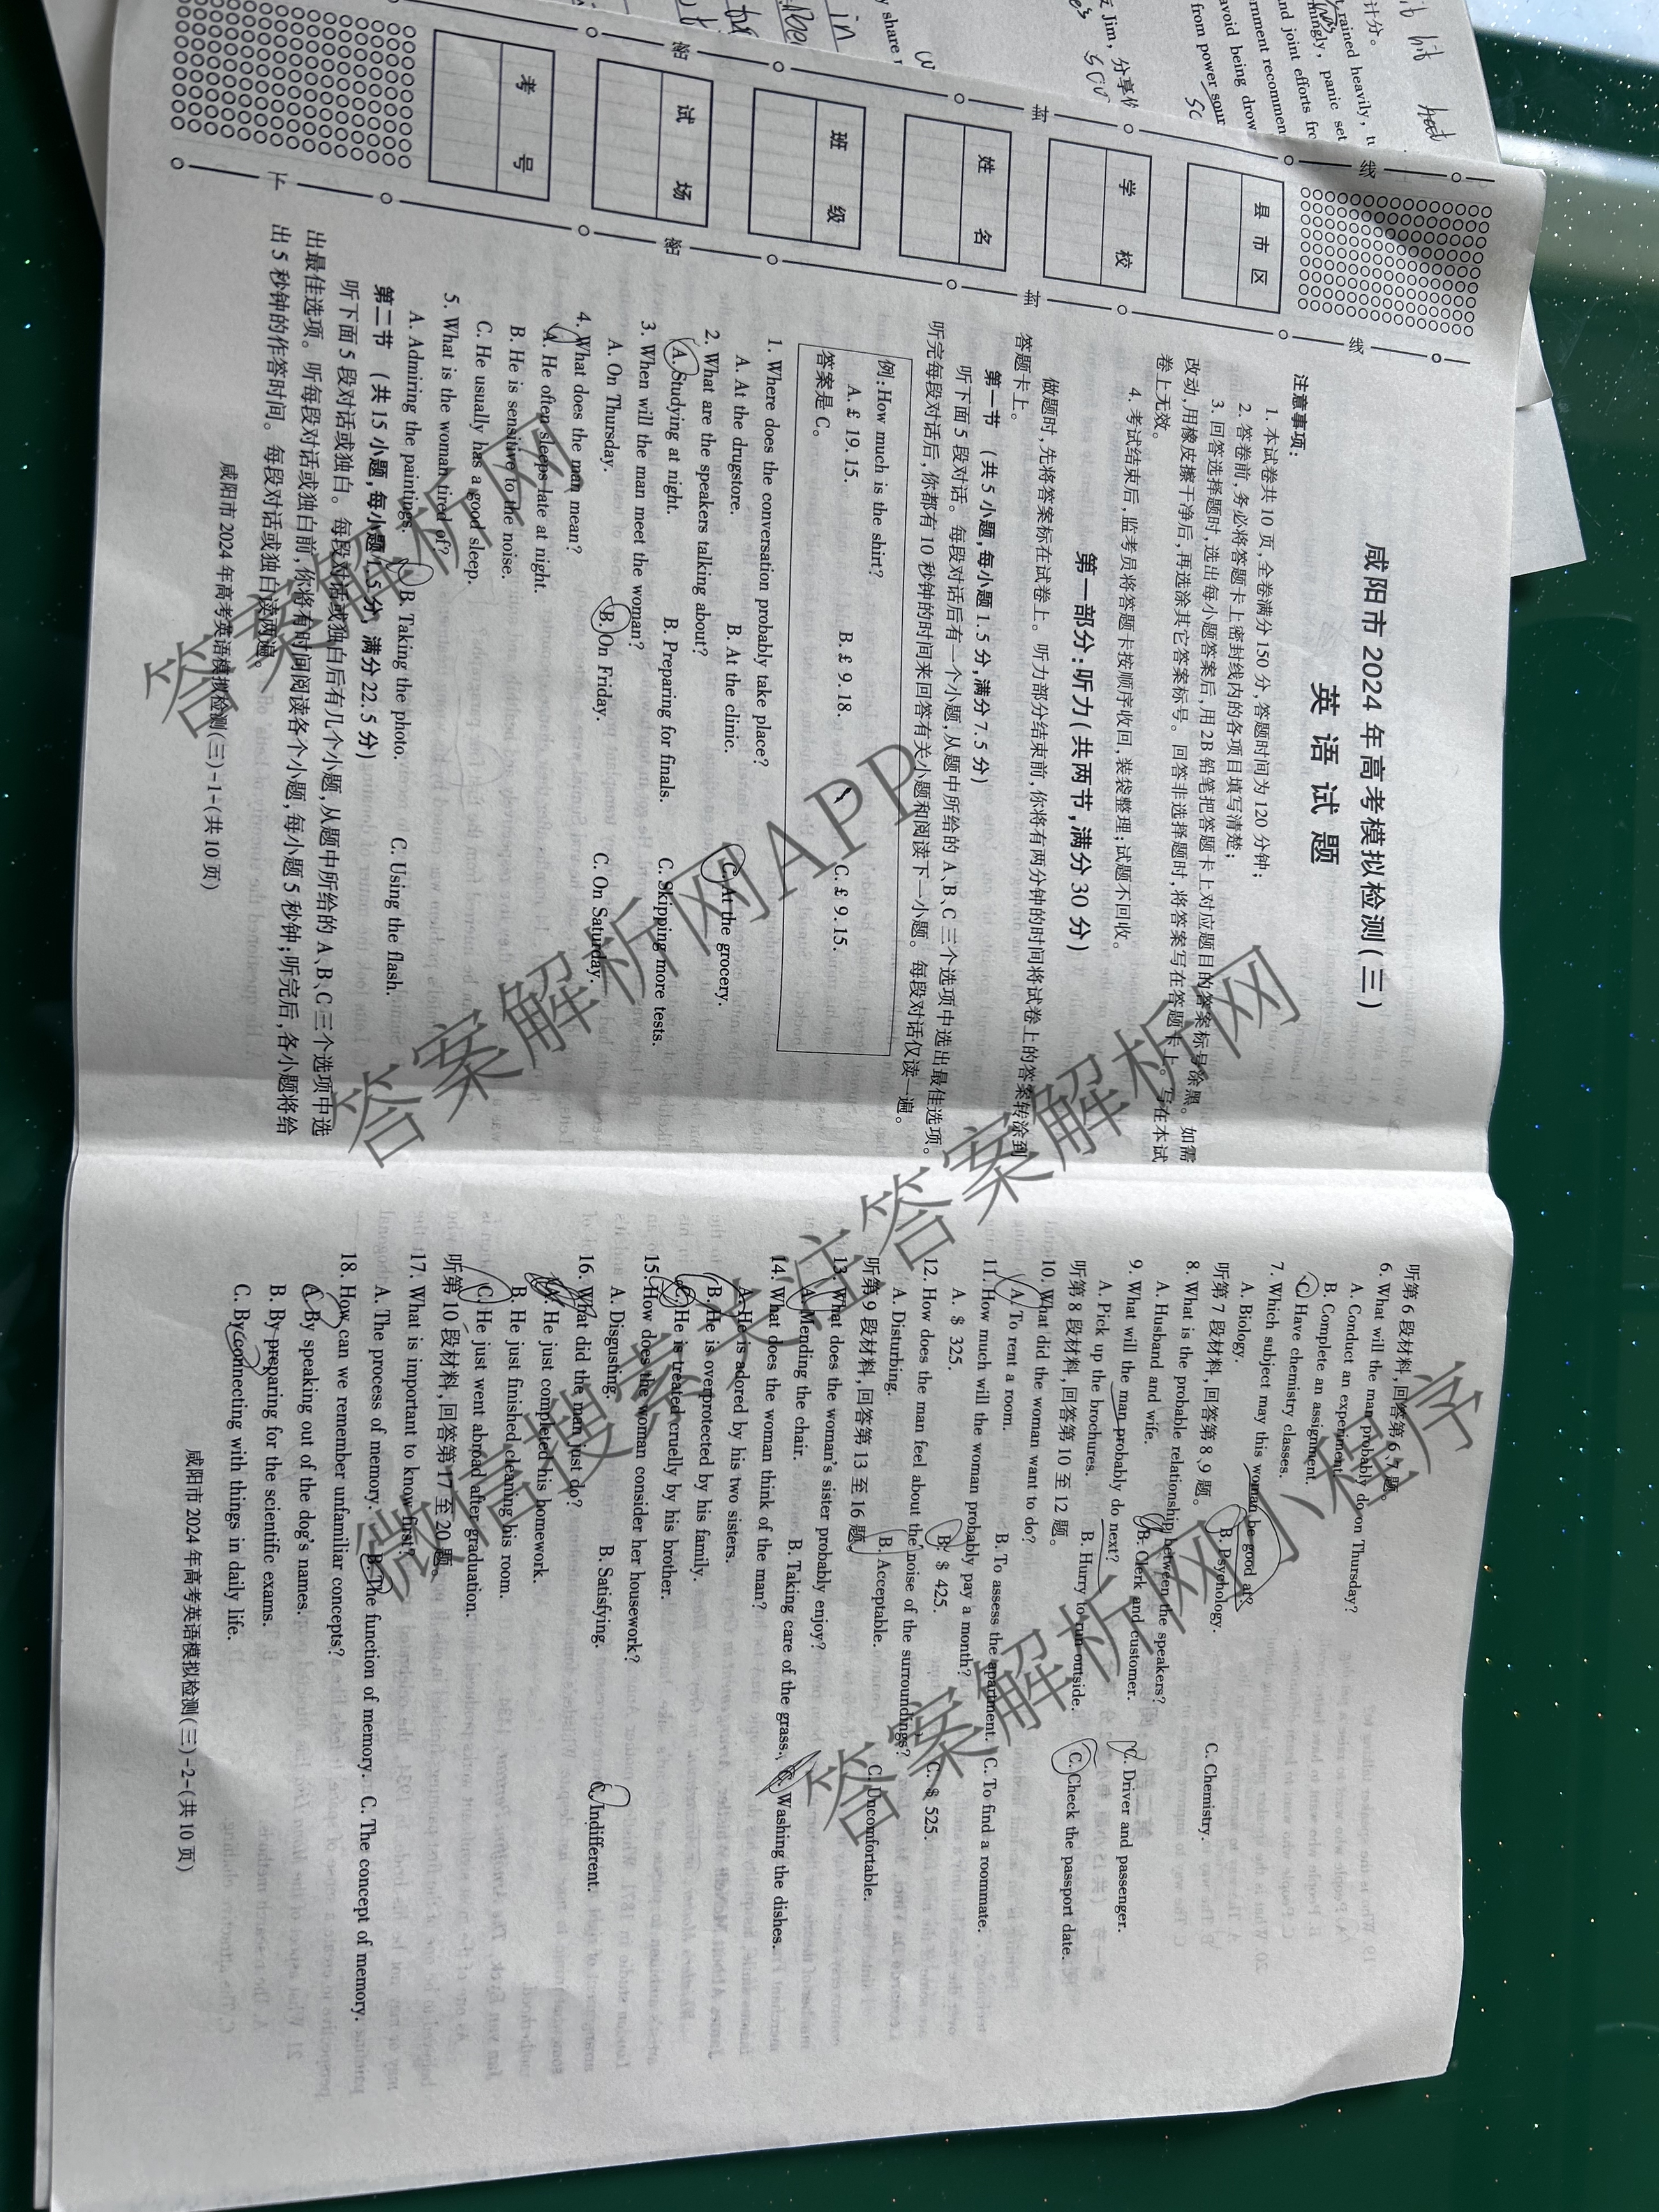 咸阳市 2024 年高考模拟检测(三)
英 语 试 题
注意事项：
1. 本试卷共 10 页,全卷满分 150 分,答题时间为 120 分钟;
2. 答卷前,务必将答题卡上密封线内的各项目填写清楚;
3. 回答选择题时,选出每小题答案后,用 2B 铅笔把答题卡上对应题目的答案标号涂黑。如需
改动,用橡皮擦干净后,再选涂其它答案标号。回答非选择题时,将答案写在答题卡上。写在本试
卷上无效。
4. 考试结束后,监考员将答题卡按顺序收回,装袋整理;试题不回收。
第一部分:听力(共两节,满分 30 分)
做题时,先将答案标在试卷上。听力部分结束前,你将有两分钟的时间将试卷上的答案转涂到
答题卡上。
第一节 (共 5 小题,每小题 1.5 分,满分 7.5 分)
听下面 5 段对话。每段对话后有一个小题,从题中所给的 A、B、C 三个选项中选出最佳选项。
听完每段对话后,你都有 10 秒钟的时间来回答有关小题和阅读下一小题。每段对话仅读一遍。
例:How much is the shirt?
A. £ 19.15. B. £ 9.18. C. £ 9.15.
答案是 C。
1. Where does the conversation probably take place?
A. At the drugstore. B. At the clinic. C. At the grocery.
2. What are the speakers talking about?
A. Studying at night. B. Preparing for finals. C. Skipping more tests.
3. When will the man meet the woman?
A. On Thursday. B. On Friday. C. On Saturday.
4. What does the man mean?
A. He often sleeps late at night.
B. He is sensitive to the noise.
C. He usually has a good sleep.
5. What is the woman tired of?
A. Admiring the paintings. B. Taking the photo. C. Using the flash.
第二节 (共 15 小题,每小题 1.5 分,满分 22.5 分)
听下面 5 段对话或独白。每段对话或独白后有几个小题,从题中所给的 A、B、C 三个选项中选
出最佳选项。听每段对话或独白前,你将有时间阅读各个小题,每小题 5 秒钟;听完后,各小题将给
出 5 秒钟的作答时间。每段对话或独白读两遍。
咸阳市 2024 年高考英语模拟检测(三)-1-(共 10 页)
听第 6 段材料,回答第 6、7 题。
6. What will the man probably do on Thursday?
A. Conduct an experiment.
B. Complete an assignment.
C. Have chemistry classes.
7. Which subject may this woman be good at?
A. Biology. B. Psychology. C. Chemistry.
听第 7 段材料,回答第 8、9 题。
8. What is the probable relationship between the speakers?
A. Husband and wife. B. Clerk and customer. C. Driver and passenger.
9. What will the man probably do next?
A. Pick up the brochures. B. Hurry to run outside. C. Check the passport date.
听第 8 段材料,回答第 10 至 12 题。
10. What did the woman want to do?
A. To rent a room. B. To assess the apartment. C. To find a roommate.
11. How much will the woman probably pay a month?
A. $ 325. B. $ 425. C. $ 525.
12. How does the man feel about the noise of the surroundings?
A. Disturbing. B. Acceptable. C. Uncomfortable.
听第 9 段材料,回答第 13 至 16 题。
13. What does the woman's sister probably enjoy?
A. Mending the chair. B. Taking care of the grass. C. Washing the dishes.
14. What does the woman think of the man?
A. He is adored by his two sisters.
B. He is overprotected by his family.
C. He is treated cruelly by his brother.
15. How does the woman consider her housework?
A. Disgusting. B. Satisfying. C. Indifferent.
16. What did the man just do?
A. He just completed his homework.
B. He just finished cleaning his room.
C. He just went abroad after graduation.
听第 10 段材料,回答第 17 至 20 题。
17. What is important to know first?
A. The process of memory. B. The function of memory. C. The concept of memory.
18. How can we remember unfamiliar concepts?
A. By speaking out of the dog's names.
B. By preparing for the scientific exams.
C. By connecting with things in daily life.
咸阳市 2024 年高考英语模拟检测(三)-2-(共 10 页)
县 市 区
学 校
姓 名
班 级
试 场
考 号
密
封
线
密
封
线
下
计分。
rained heavily, tu
hingly, panic set
nd joint efforts fro
rnment recommen
avoid being drow
from power sour
Jim, 分享你
y share
in
答案解析网
答案解析网APP
微信搜索关注答案解析网
答案解析网小程序